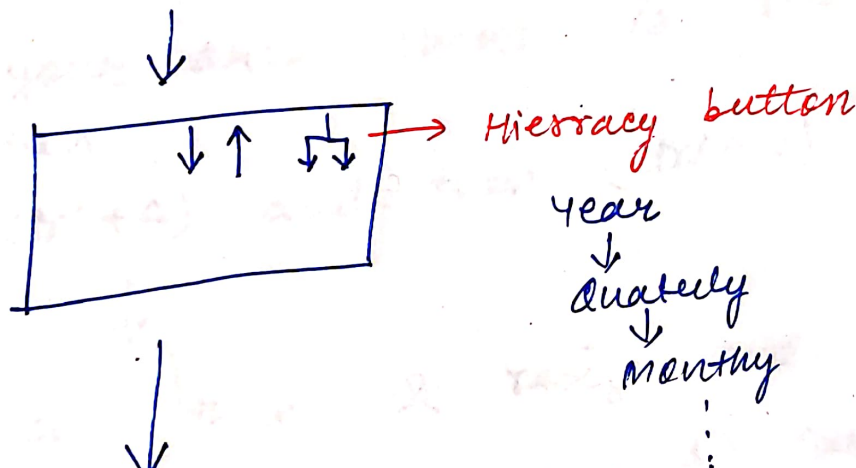 Hierracy button
Year
Quaterly
Monthy